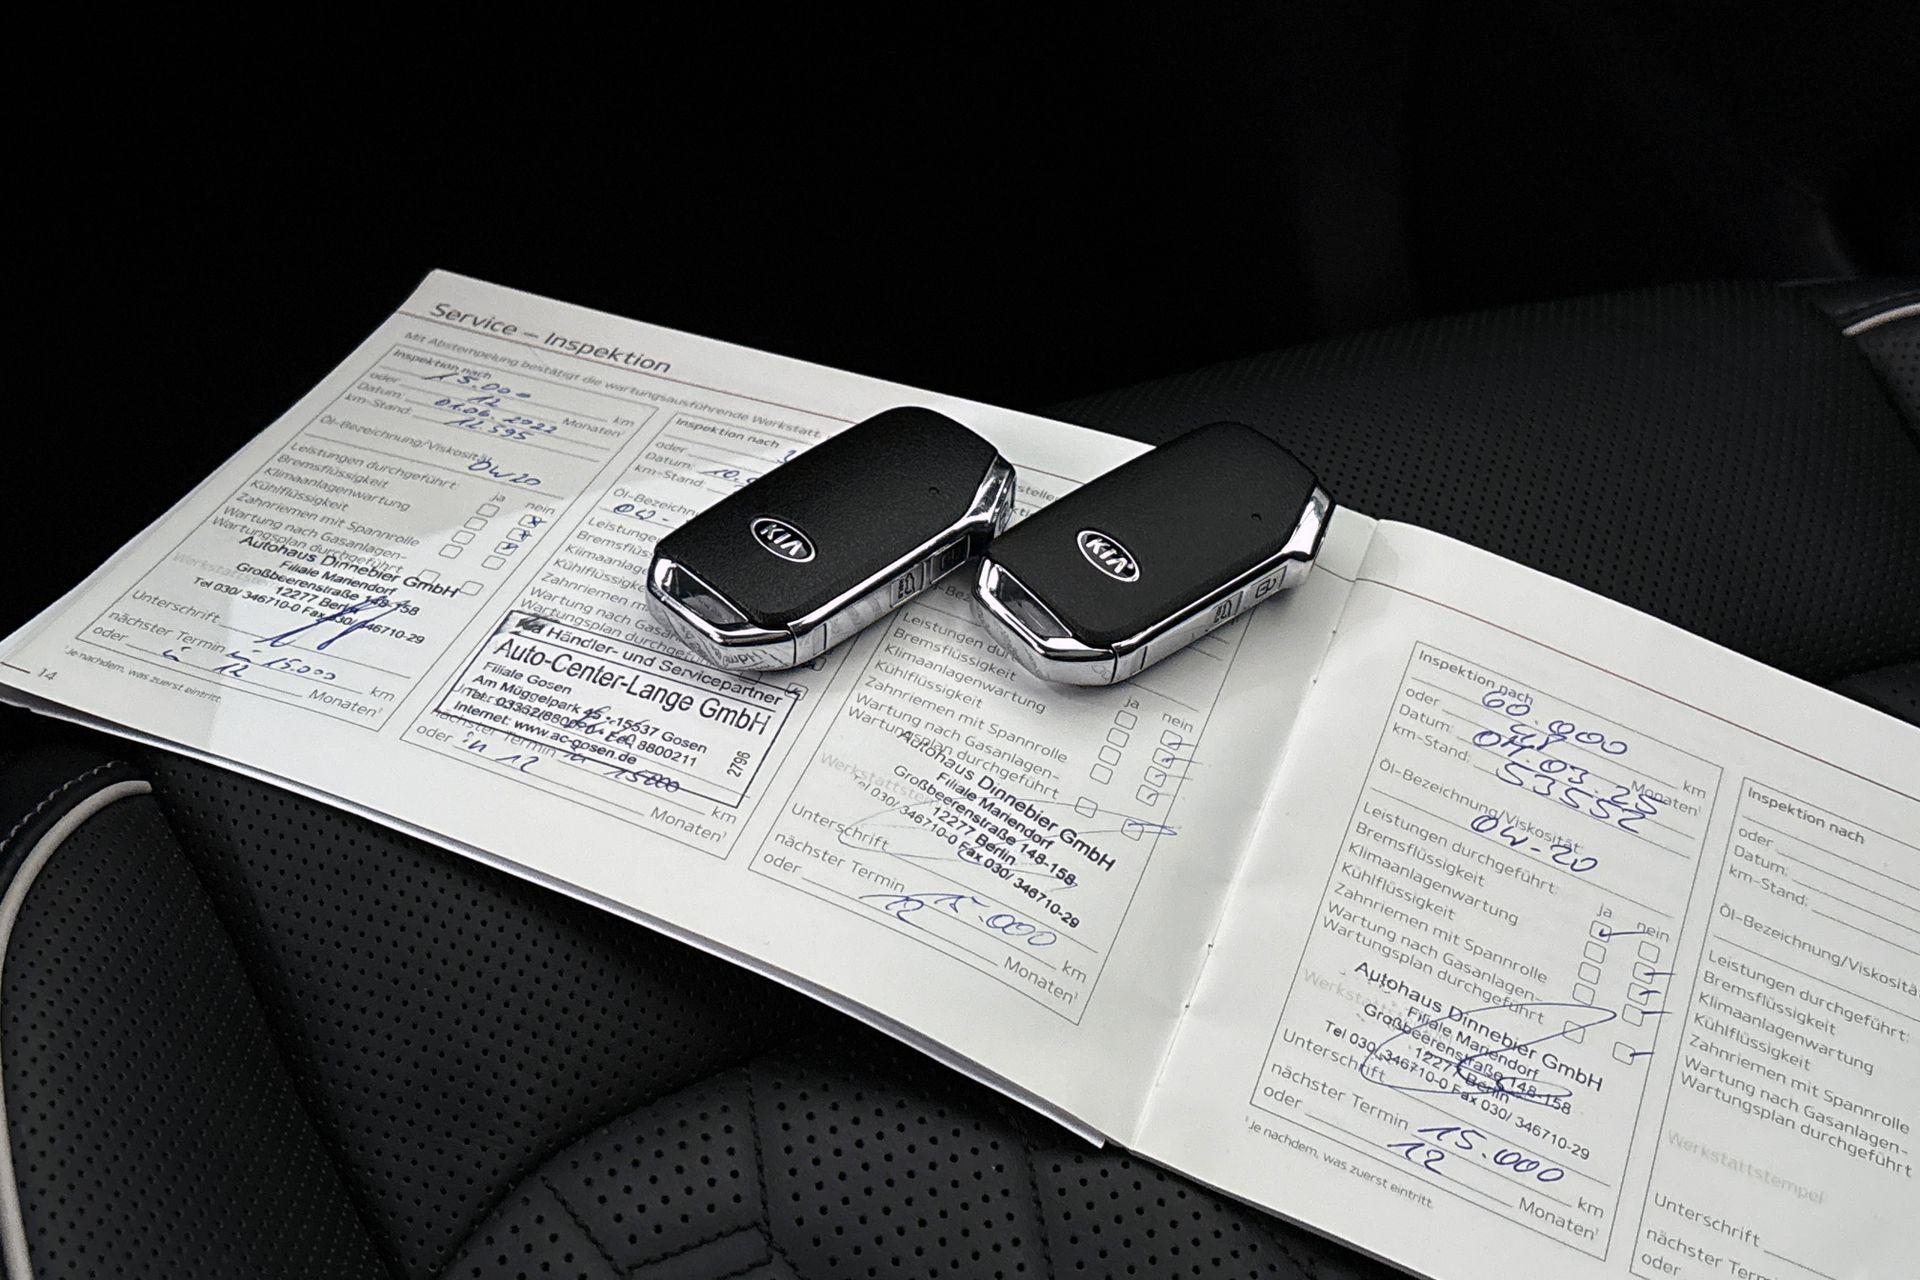 Service – Inspektion
Mit Abstempelung bestätigt die wartungsausführende Werkstatt,
Inspektion nach 15.000 km
oder 12 Monaten¹
Datum: 01.06.2022
km-Stand: 12.595
Öl-Bezeichnung/Viskosität: 0W20
Leistungen durchgeführt: ja nein
Bremsflüssigkeit
Klimaanlagenwartung
Kühlflüssigkeit
Zahnriemen mit Spannrolle
Wartung nach Gasanlagen-
Wartungsplan durchgeführt
Autohaus Dinnebier GmbH
Filiale Mariendorf
Großbeerenstraße 148-158
12277 Berlin
Tel 030/ 346710-0 Fax 030/ 346710-29
Unterschrift
nächster Termin in 15.000 km
oder in 12 Monaten¹
¹Je nachdem, was zuerst eintritt.
14
Inspektion nach
oder
Datum: 10.
km-Stand:
Öl-Bezeichn
0W-
Leistungen
Bremsflüss
Klimaanla
Kühlflüssig
Zahnriemen m
Wartung nach Gasan
Wartungsplan durchgefü
Kia Händler- und Servicepartner
Auto-Center-Lange GmbH
Filiale Gosen
Am Müggelpark 45 · 15537 Gosen
Internet: www.ac-gosen.de
2796
nächster Termin in 15000 km
oder in 12 Monaten¹
KIA
KIA
Leistungen du
Bremsflüssigkeit
Klimaanlagenwartung
Kühlflüssigkeit
Zahnriemen mit Spannrolle
Wartung nach Gasanlagen-
Wartungsplan durchgeführt
ja nein
Autohaus Dinnebier GmbH
Filiale Mariendorf
Großbeerenstraße 148-158
12277 Berlin
Tel 030/ 346710-0 Fax 030/ 346710-29
Unterschrift
nächster Termin 15.000 km
oder 12 Monaten¹
Inspektion nach 60.000 km
oder 48 Monaten¹
Datum: 04.03.25
km-Stand: 53552
Öl-Bezeichnung/Viskosität:
0W-20
Leistungen durchgeführt: ja nein
Bremsflüssigkeit
Klimaanlagenwartung
Kühlflüssigkeit
Zahnriemen mit Spannrolle
Wartung nach Gasanlagen-
Wartungsplan durchgeführt
Autohaus Dinnebier GmbH
Filiale Mariendorf
Großbeerenstraße 148-158
12277 Berlin
Tel 030/ 346710-0 Fax 030/ 346710-29
Unterschrift
nächster Termin 15.000 km
oder 12 Monaten¹
¹Je nachdem, was zuerst eintritt.
Inspektion nach
oder
Datum:
km-Stand:
Öl-Bezeichnung/Viskosität
Leistungen durchgeführt:
Bremsflüssigkeit
Klimaanlagenwartung
Kühlflüssigkeit
Zahnriemen mit Spannrolle
Wartung nach Gasanlagen-
Wartungsplan durchgeführt
Werkstattstempel
Unterschrift
nächster Termin
oder